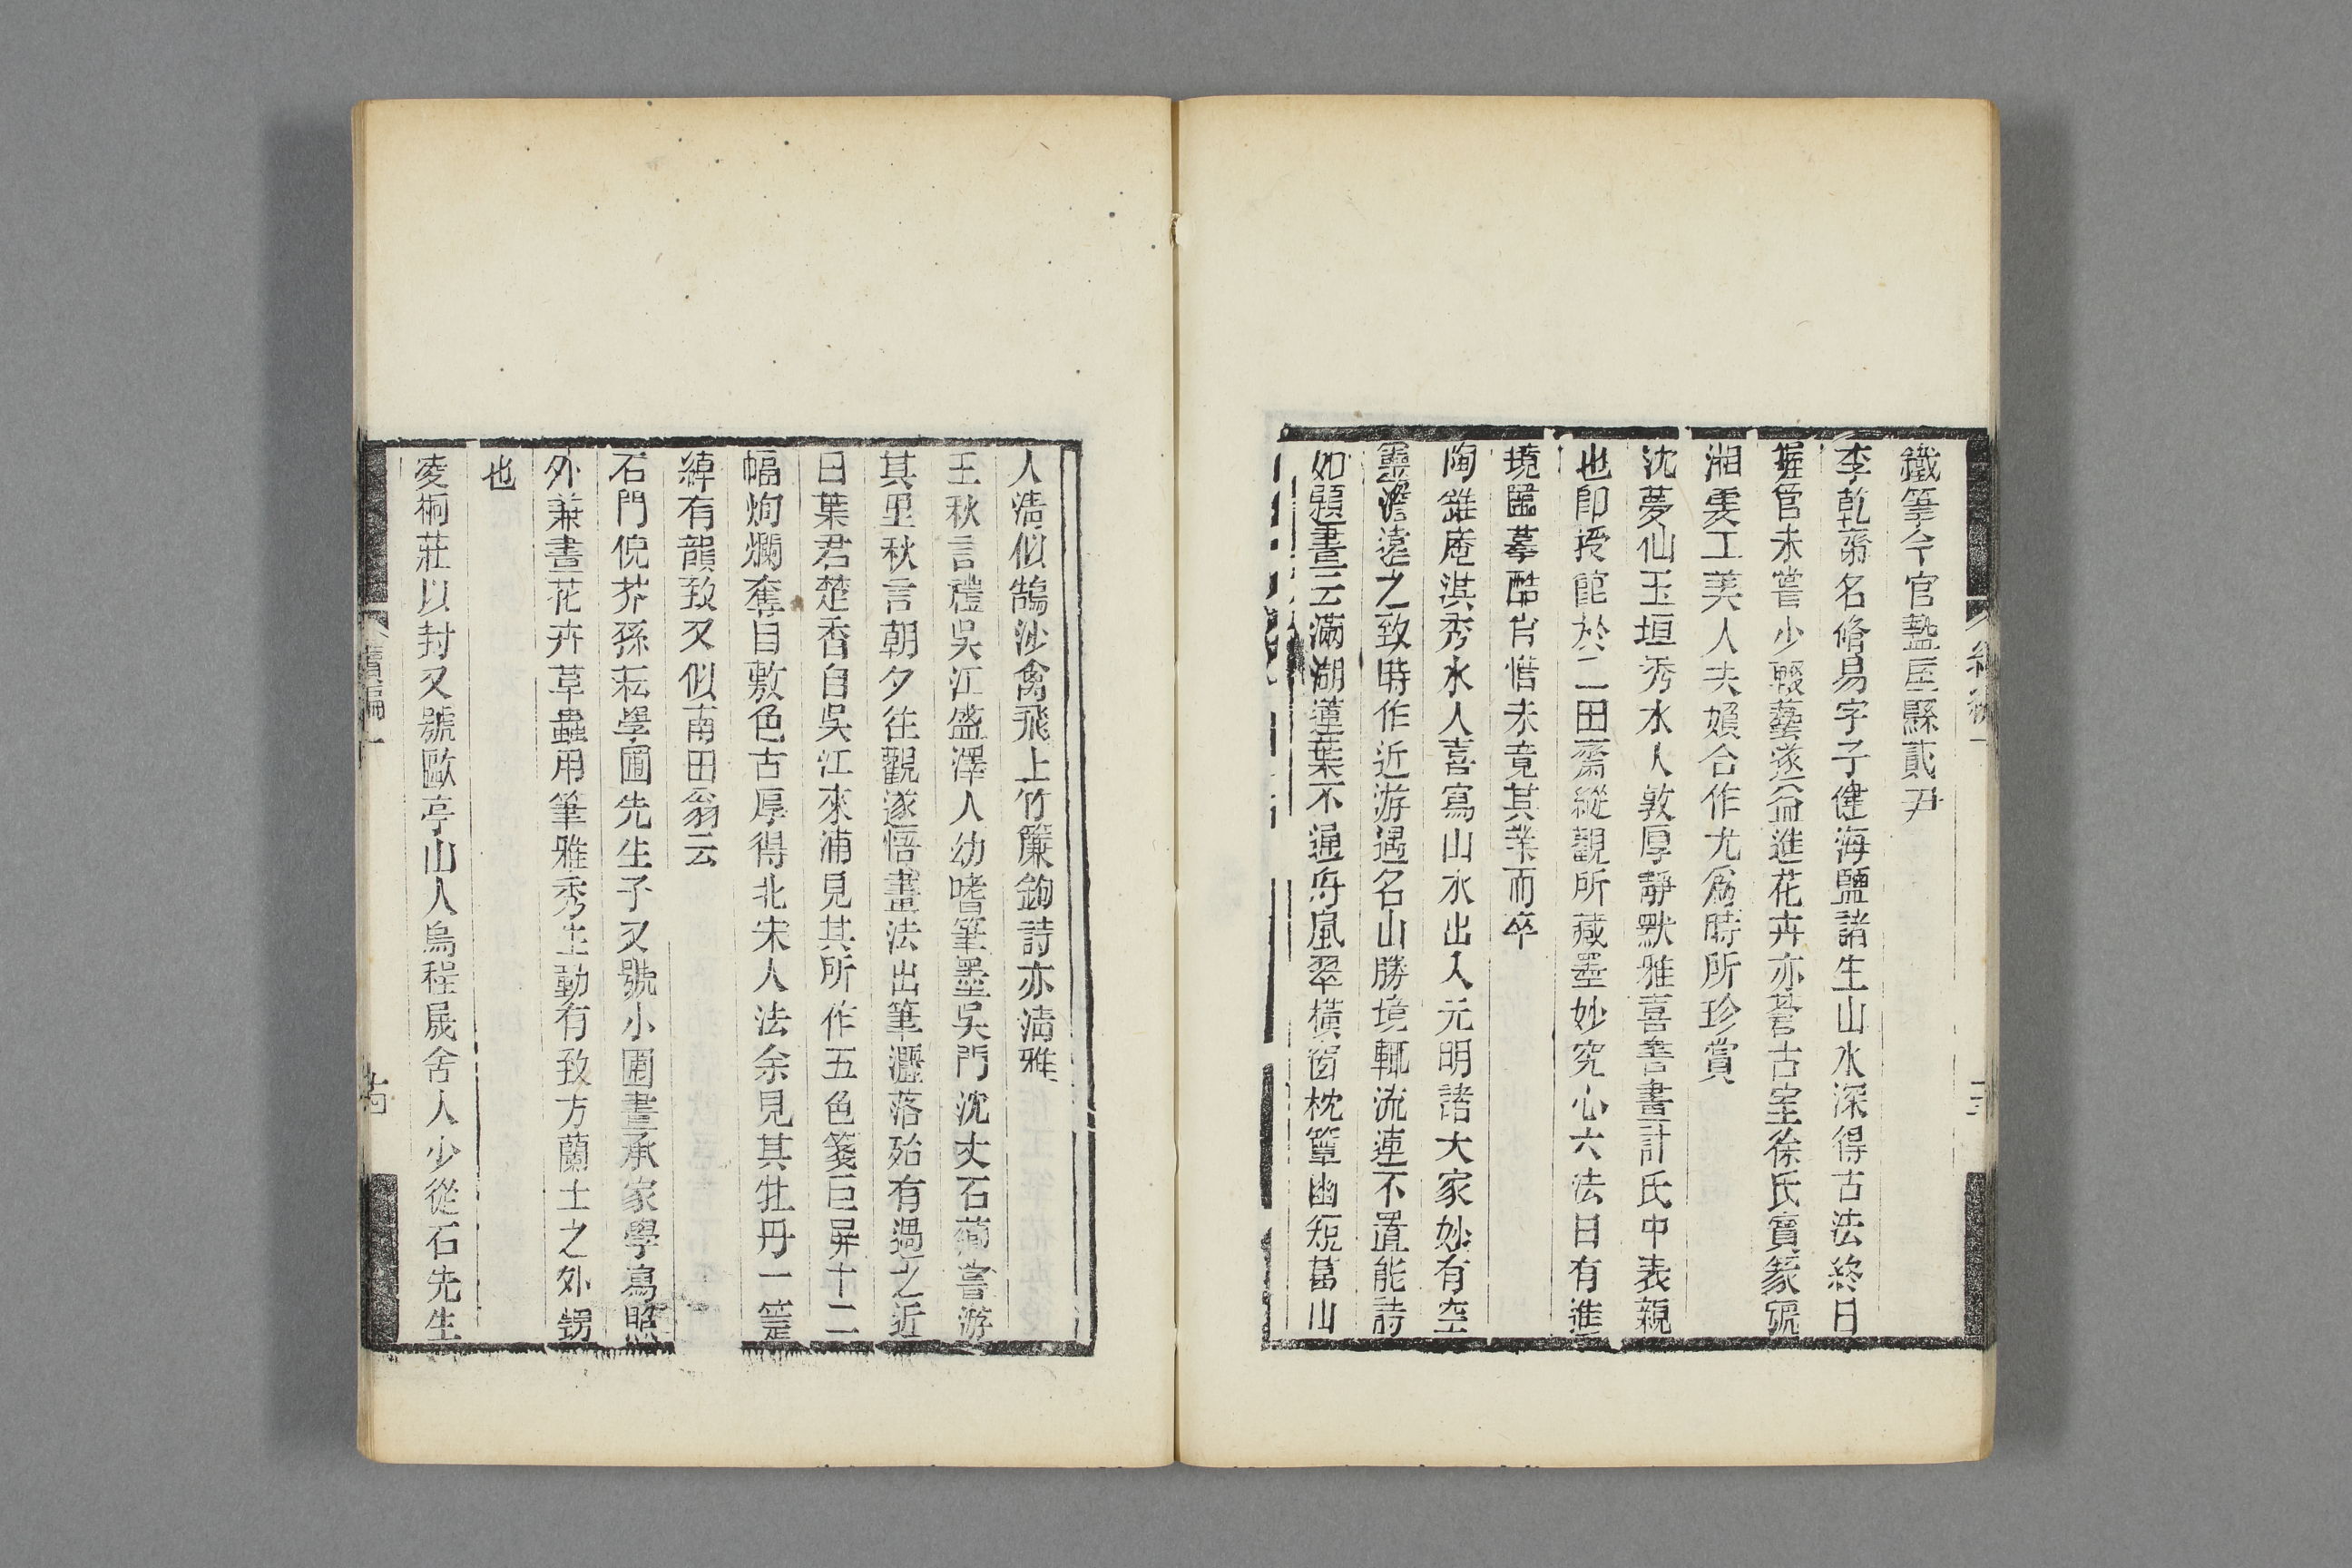 鐵筆今官盩厔縣貳尹
李乾齋名脩易字子健海鹽諸生山水深得古法終日
握管未嘗少輟藝遂益進花卉亦蒼古室徐氏寶篆號
湘雯工美人夫婦合作尤爲時所珍賞
沈夢仙玉垣秀水人敦厚靜默雅喜書畫計氏中表親
也卽授館於二田齋縱觀所藏墨妙究心六法日有進
境臨摹酷肖惜未竟其業而卒
陶錐庵淇秀水人喜寫山水出入元明諸大家妙有空
靈澹遠之致時作近游遇名山勝境輒流連不置能詩
如題畫云滿湖蓮葉不通舟風翠橫窗枕簟幽短葛山
人淸似鵠沙禽飛上竹簾鉤詩亦淸雅
王秋言禮吳江盛澤人幼嗜筆墨吳門沈丈石薌嘗游
其里秋言朝夕往觀遂悟畫法出筆灑落殆有過之近
日葉君楚香自吳江來浦見其所作五色箋巨屏十二
幅炳爛奪目敷色古厚得北宋人法余見其牡丹一箑
綽有韻致又似南田翁云
石門倪芥孫耘學圃先生子又號小圃畫承家學寫照
外兼畫花卉草蟲用筆雅秀生動有致方蘭士之外甥
也
凌桐莊以封又號歐亭山人烏程晟舍人少從石先生
續編一
十四